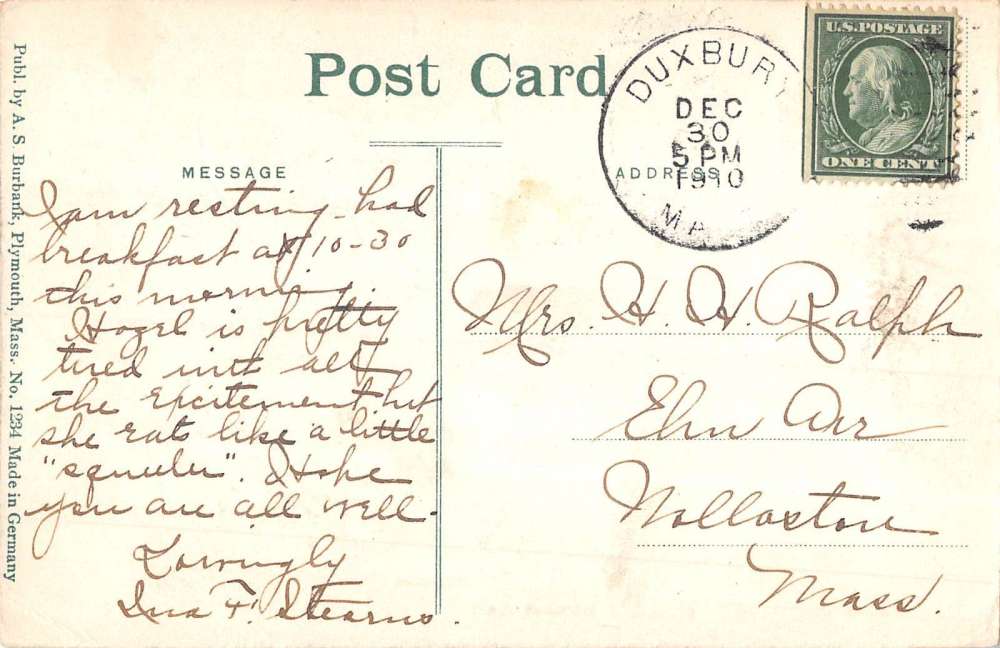 Post Card
U.S. POSTAGE
ONE CENT
DUXBURY
DEC
30
5 PM
1910
MA
Publ. by A. S. Burbank, Plymouth, Mass. No. 1234 Made in Germany
MESSAGE
I am resting - had
breakfast at 10-30
this morning.
Hazel is pretty
tired with all
the excitement but
she eats like a little
"squeeler". Hope
you are all well.
Lovingly
Ina F. Stearns.
ADDRESS
Mrs. H. H. Ralph
Elm Avr
Wollaston
Mass.